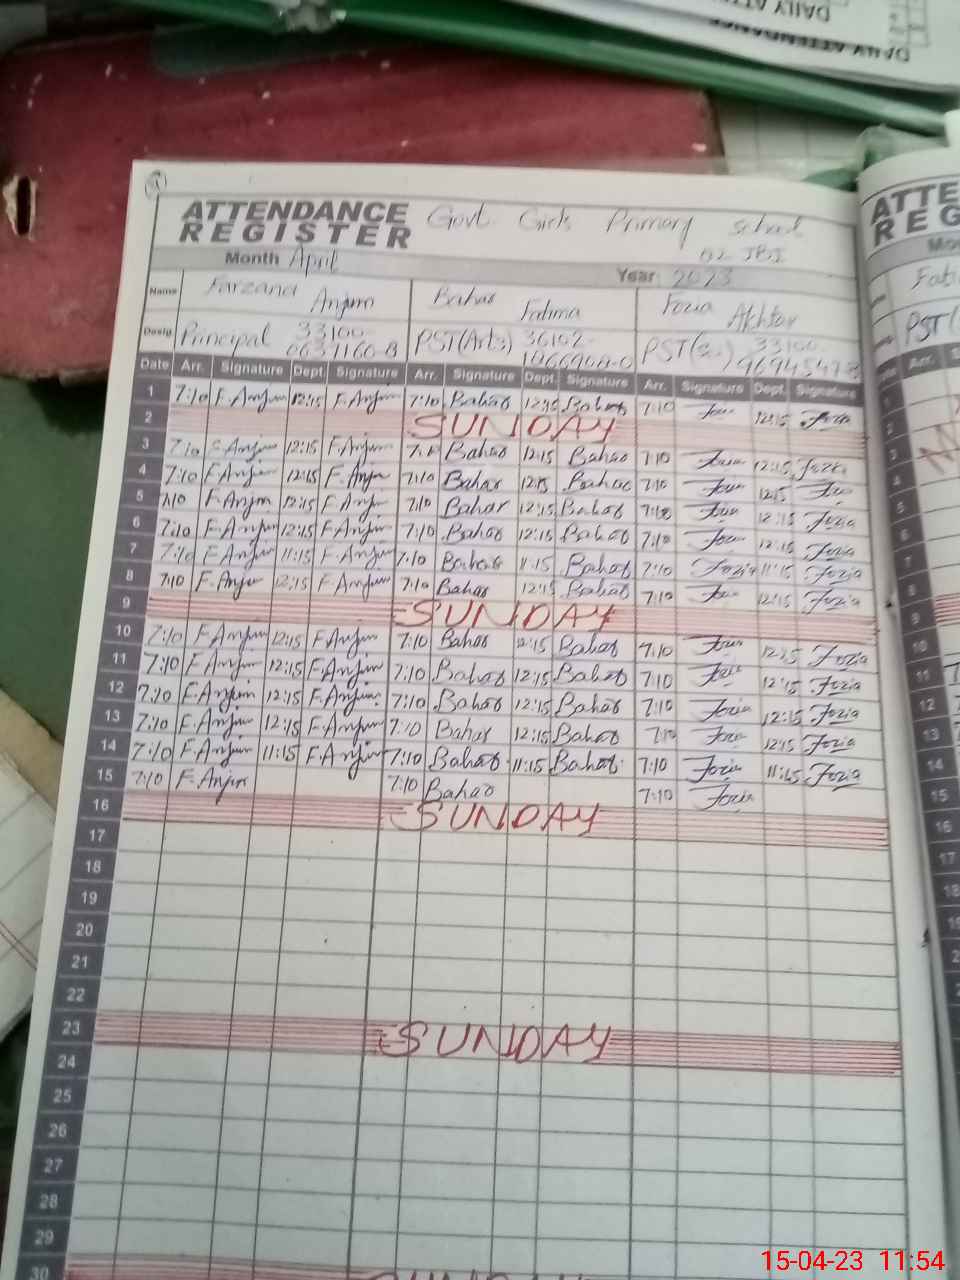 DAILY ATTE
DAILY ATTENDANCE
ATTENDANCE
REGISTER
Govt Girls Primary School
02 JB
Month April
Year: 2023
Name Farzana Anjum Bahar Fatima Fozia Akhtar
Desig Principal 33100-0637160-8 PST(Arts) 36102- PST(Sc.) 33100-
Date Arr. Signature Dept. Signature Arr. Signature Dept. Signature Arr. Signature Dept. Signature
1 7:10 F.Anjum 12:15 F.Anjum 7:10 Bahar 12:15 Bahar 7:10 Fozia 12:15 Fozia
2 SUNDAY
3 7:10 F.Anjum 12:15 F.Anjum 7:10 Bahar 12:15 Bahar 7:10 Fozia 12:15 Fozia
4 7:10 F.Anjum 12:15 F.Anjum 7:10 Bahar 12:15 Bahar 7:10 Fozia 12:15 Fozia
5 7:10 F.Anjum 12:15 F.Anjum 7:10 Bahar 12:15 Bahar 7:10 Fozia 12:15 Fozia
6 7:10 F.Anjum 12:15 F.Anjum 7:10 Bahar 12:15 Bahar 7:10 Fozia 12:15 Fozia
7 7:10 F.Anjum 11:15 F.Anjum 7:10 Bahar 11:15 Bahar 7:10 Fozia 11:15 Fozia
8 7:10 F.Anjum 12:15 F.Anjum 7:10 Bahar 12:15 Bahar 7:10 Fozia 12:15 Fozia
9 SUNDAY
10 7:10 F.Anjum 12:15 F.Anjum 7:10 Bahar 12:15 Bahar 7:10 Fozia 12:15 Fozia
11 7:10 F.Anjum 12:15 F.Anjum 7:10 Bahar 12:15 Bahar 7:10 Fozia 12:15 Fozia
12 7:10 F.Anjum 12:15 F.Anjum 7:10 Bahar 12:15 Bahar 7:10 Fozia 12:15 Fozia
13 7:10 F.Anjum 12:15 F.Anjum 7:10 Bahar 12:15 Bahar 7:10 Fozia 12:15 Fozia
14 7:10 F.Anjum 11:15 F.Anjum 7:10 Bahar 11:15 Bahar 7:10 Fozia 11:15 Fozia
15 7:10 F.Anjum 7:10 Bahar 7:10 Fozia
16 SUNDAY
17
18
19
20
21
22
23 SUNDAY
24
25
26
27
28
29
30
ATTE
REG
Mo
Fati
PST(
Arr.
3
4
5
6
7
8
9
10
11
12
13
14
15
16
17
18
15-04-23 11:54